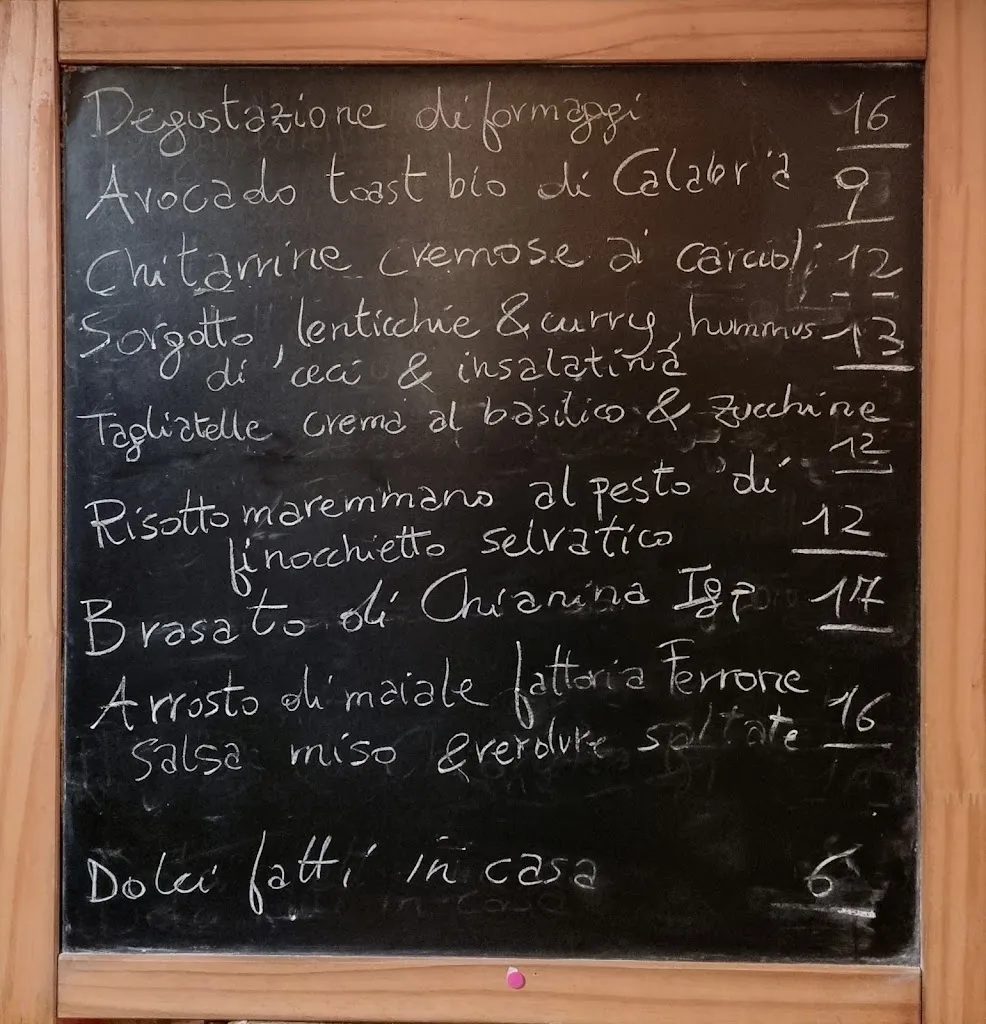 Degustazione di formaggi 16
Avocado toast bio di Calabria 9
Chitarrine cremose ai carciofi 12
Sorgotto, lenticchie & curry, hummus 13
di ceci & insalatina
Tagliatelle crema al basilico & zucchine
12
Risotto maremmano al pesto di
finocchietto selvatico 12
Brasato di Chianina Igp 17
Arrosto di maiale fattoria Ferrone
salsa miso & verdure saltate 16
Dolci fatti in casa 6